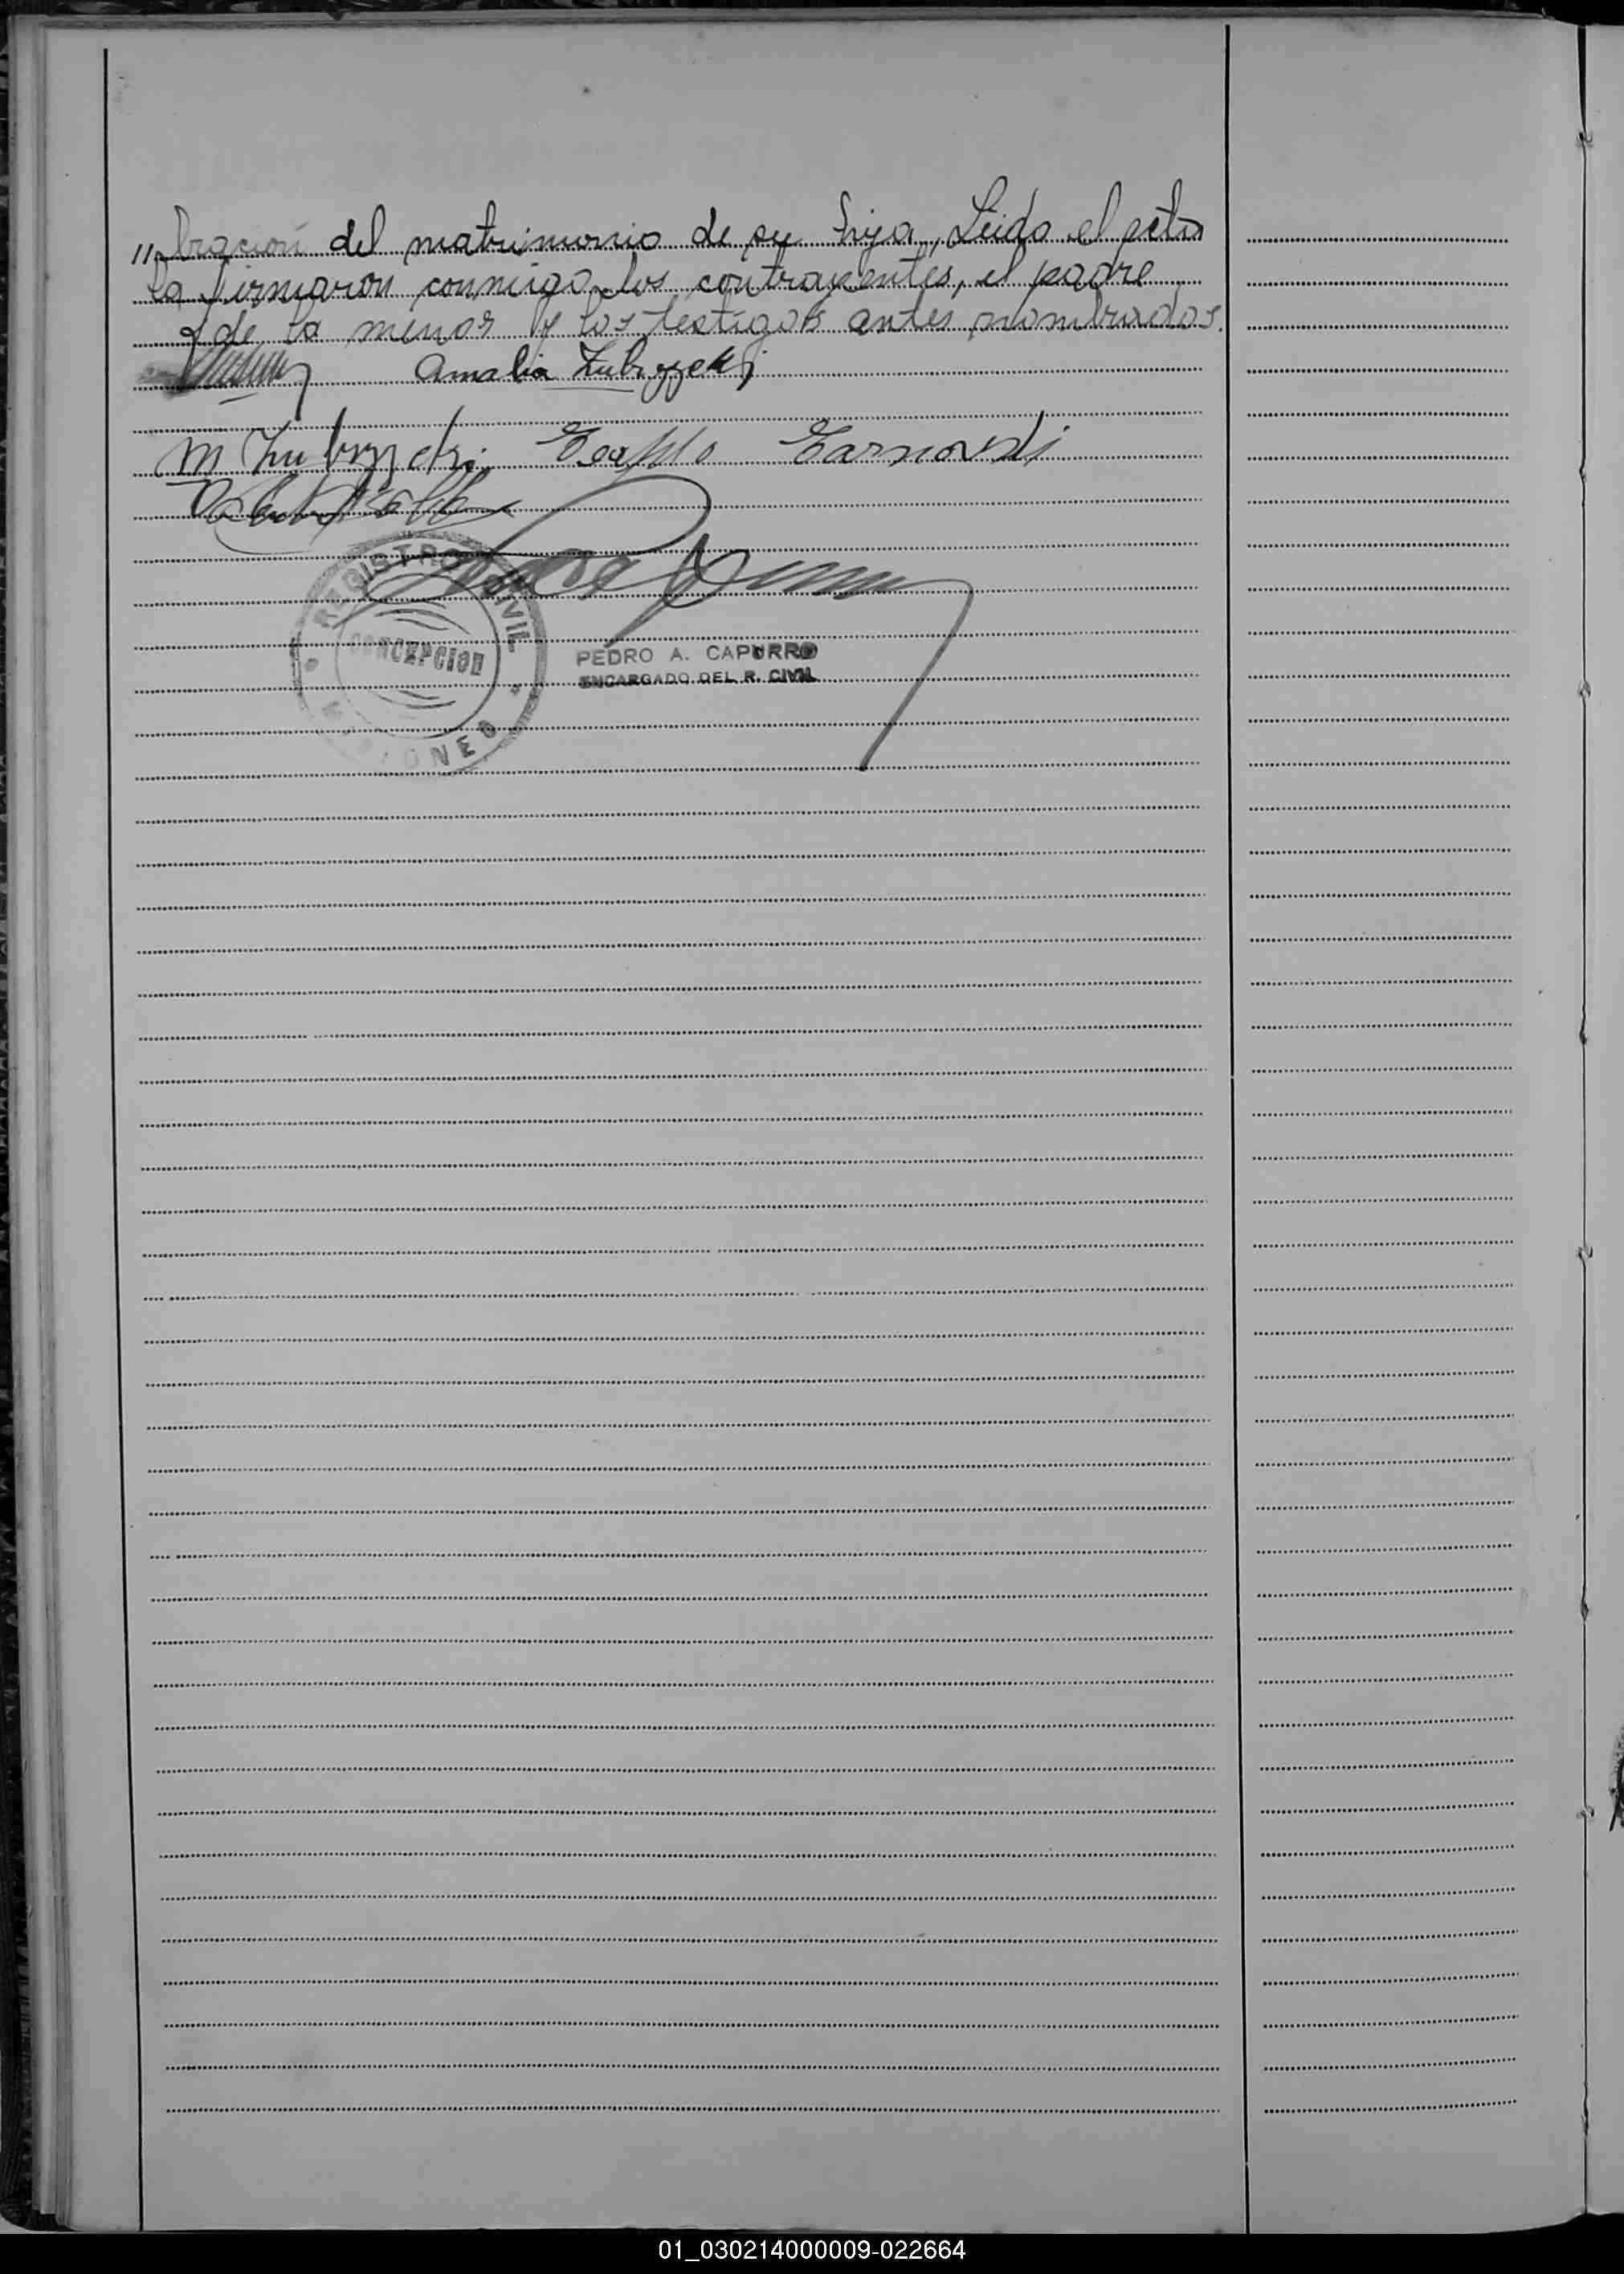 "bración del matrimonio de su hija, Leída el acta
la firmaron conmigo los contrayentes, el padre
de la menor y los testigos antes nombrados.
Amalia Zubrzycki
M Zubrzycki
REGISTRO CIVIL
CONCEPCION
MISIONES
PEDRO A. CAPURRO
ENCARGADO DEL R. CIVIL
01_030214000009-022664